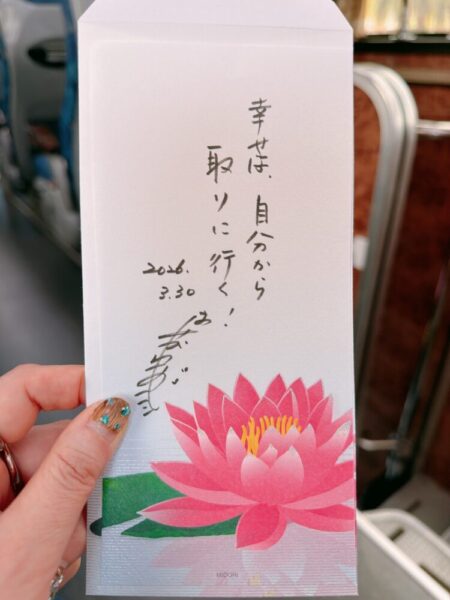 幸せは、自分から
取りに行く！
2026.
3.30
MIDORI